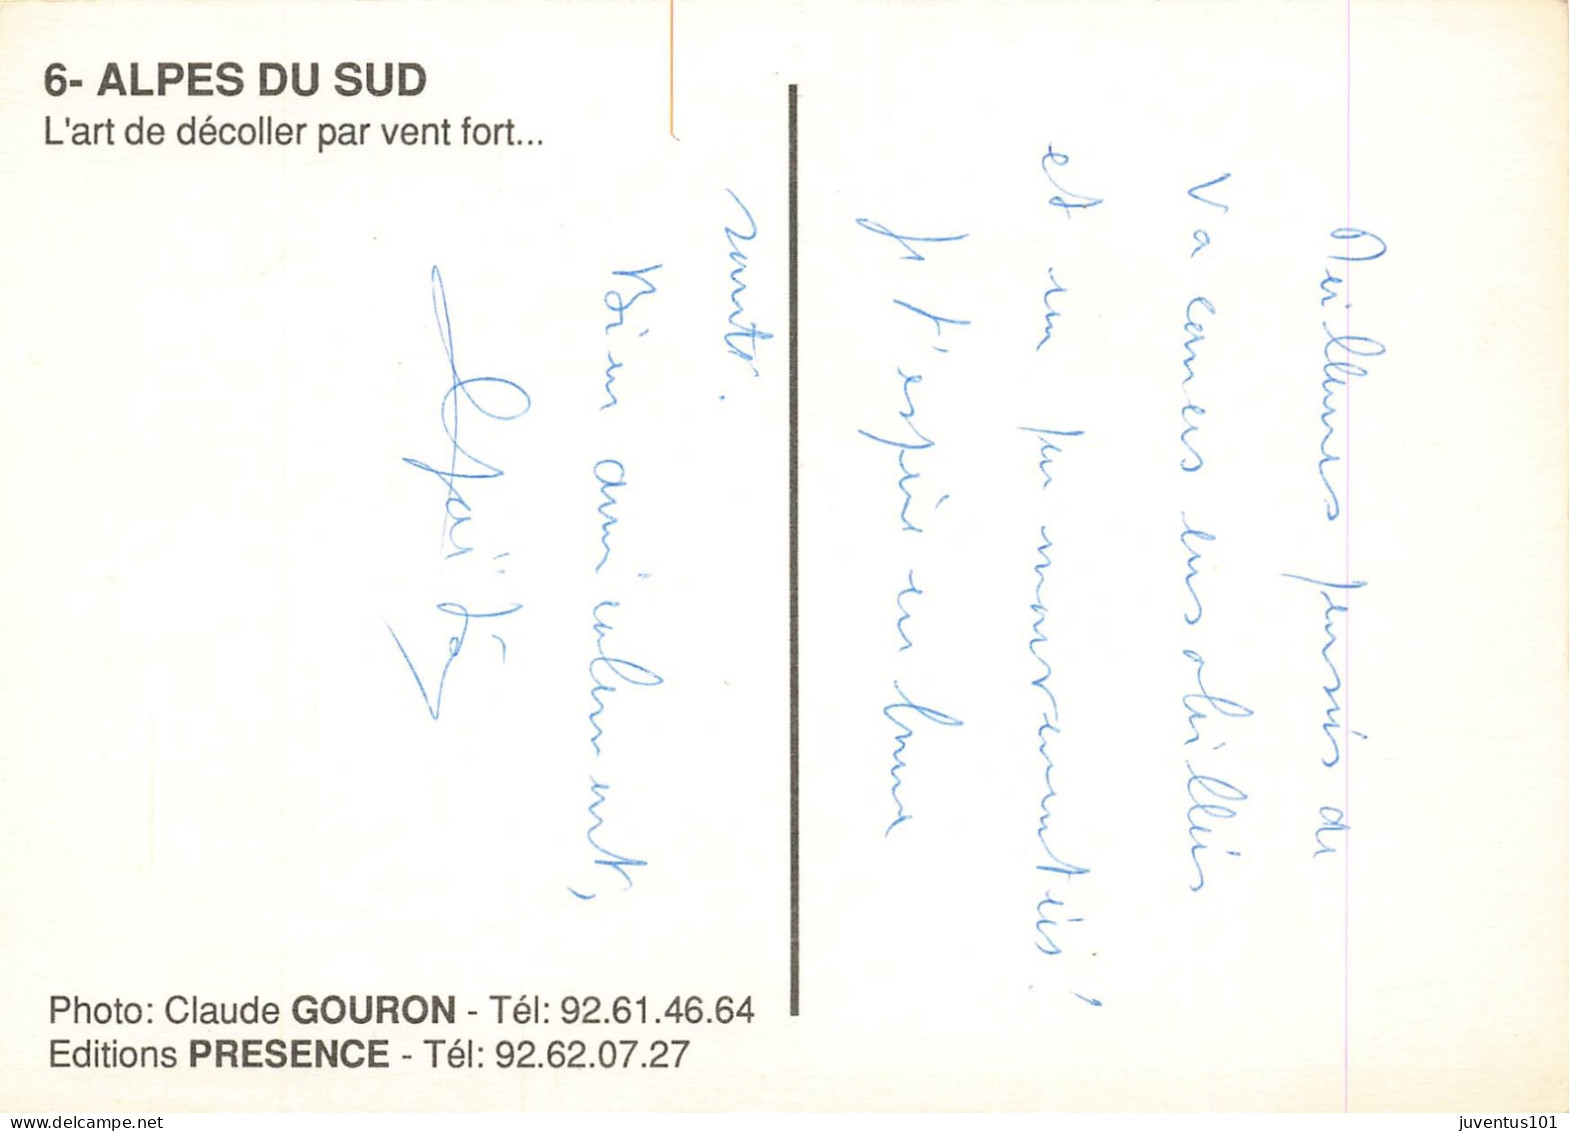 6- ALPES DU SUD
L'art de décoller par vent fort...
Meilleures pensées de
Vacances ensoleillées
et un peu mouvementées !
Je t'espère en bonne
santé.
Bien amicalement,
Photo: Claude GOURON - Tél: 92.61.46.64
Editions PRESENCE - Tél: 92.62.07.27
juventus101